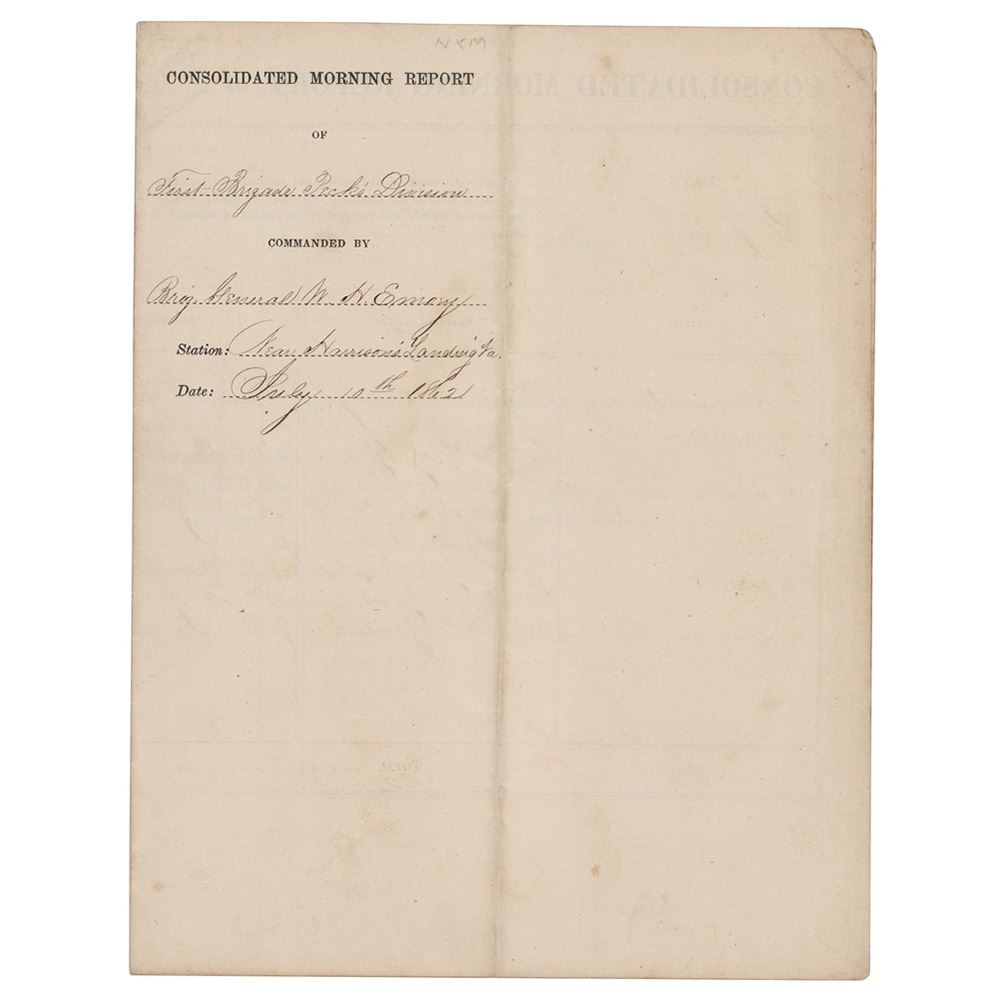 CONSOLIDATED MORNING REPORT
OF
First Brigade Peck's Division
COMMANDED BY
Brig. General W. H. Emory
Station: Near Harrison's Landing Va.
Date: July 10th 1862